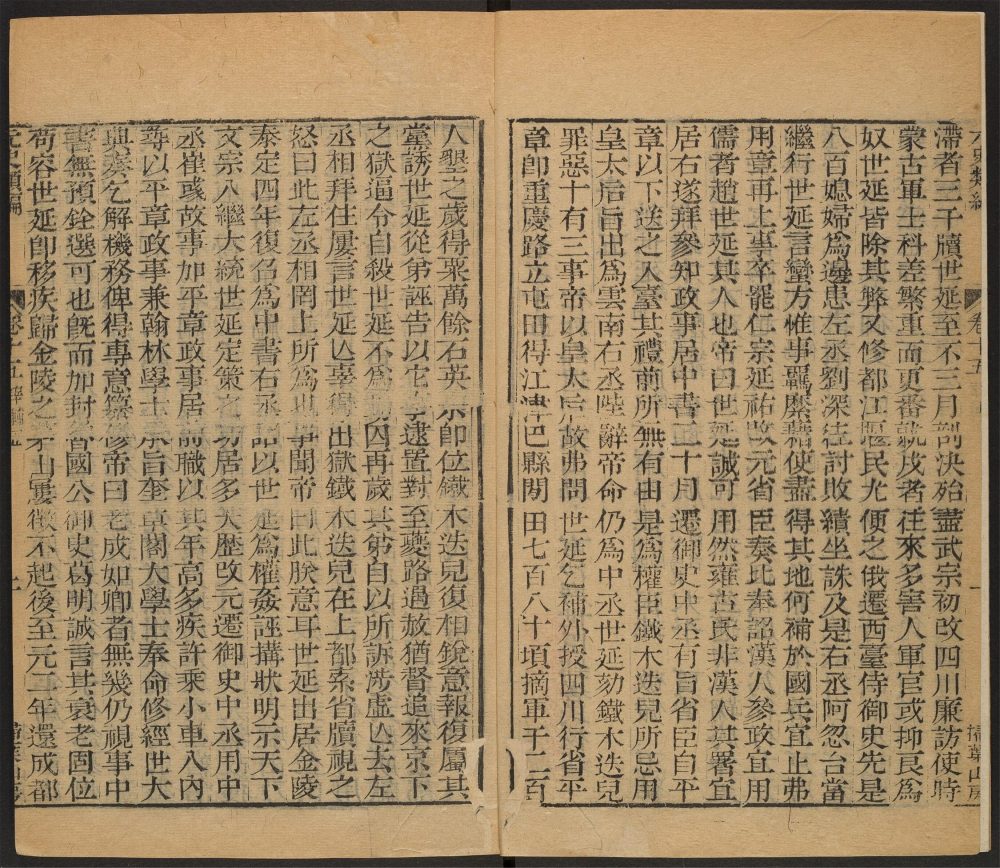 卷二十五 掃葉山房
滯者三千牘世延至不三月剖決殆盡武宗初改四川廉訪使時
蒙古軍士科差繁重而更番就戍者往來多害人軍官或抑良爲
奴世延皆除其弊又修都江堰民尤便之俄遷西臺侍御史先是
八百媳婦爲邊患左丞劉深往討敗績坐誅及是右丞阿忽台當
繼行世延言蠻方惟事羈縻藉使盡得其地何補於國兵宜止弗
用章再上事卒罷仁宗延祐改元省臣奏比奉詔漢人參政宜用
儒者趙世延其人也帝曰世延誠可用然雍古氏非漢人其署宜
居右遂拜參知政事居中書二十月遷御史中丞有旨省臣自平
章以下送之入臺其禮前所無有由是爲權臣鐵木迭兒所忌用
皇太后旨出爲雲南右丞陛辭帝命仍爲中丞世延劾鐵木迭兒
罪惡十有三事帝以皇太后故弗問世延乞補外授四川行省平
章卽重慶路立屯田得江津巴縣閒田七百八十頃摘軍千二百
人墾之歲得粟萬餘石英宗卽位鐵木迭兒復相銳意報復屬其
黨誘世延從弟誣告以它事逮置對至夔路遇赦猶督追來京下
之獄逼令自殺世延不爲動因再歲其弟自以所訴涉虛亾去左
丞相拜住屢言世延亾辜得出獄鐵木迭兒在上都索省牘視之
怒曰此左丞相罔上所爲也事聞帝曰此朕意耳世延出居金陵
泰定四年復召爲中書右丞詔以世延爲權姦誣搆狀明示天下
文宗入繼大統世延定策之功居多天歷改元遷御史中丞用中
丞崔彧故事加平章政事居前職以其年高多疾許乘小車入內
尋以平章政事兼翰林學士承旨奎章閣大學士奉命修經世大
典奏乞解機務俾得專意纂修帝曰老成如卿者無幾仍視事中
書無預銓選可也旣而加封魯國公御史葛明誠言其衰老固位
苟容世延卽移疾歸金陵之茅山屢徵不起後至元二年還成都
元史類編 卷二十五 宰輔五 二 掃葉山房